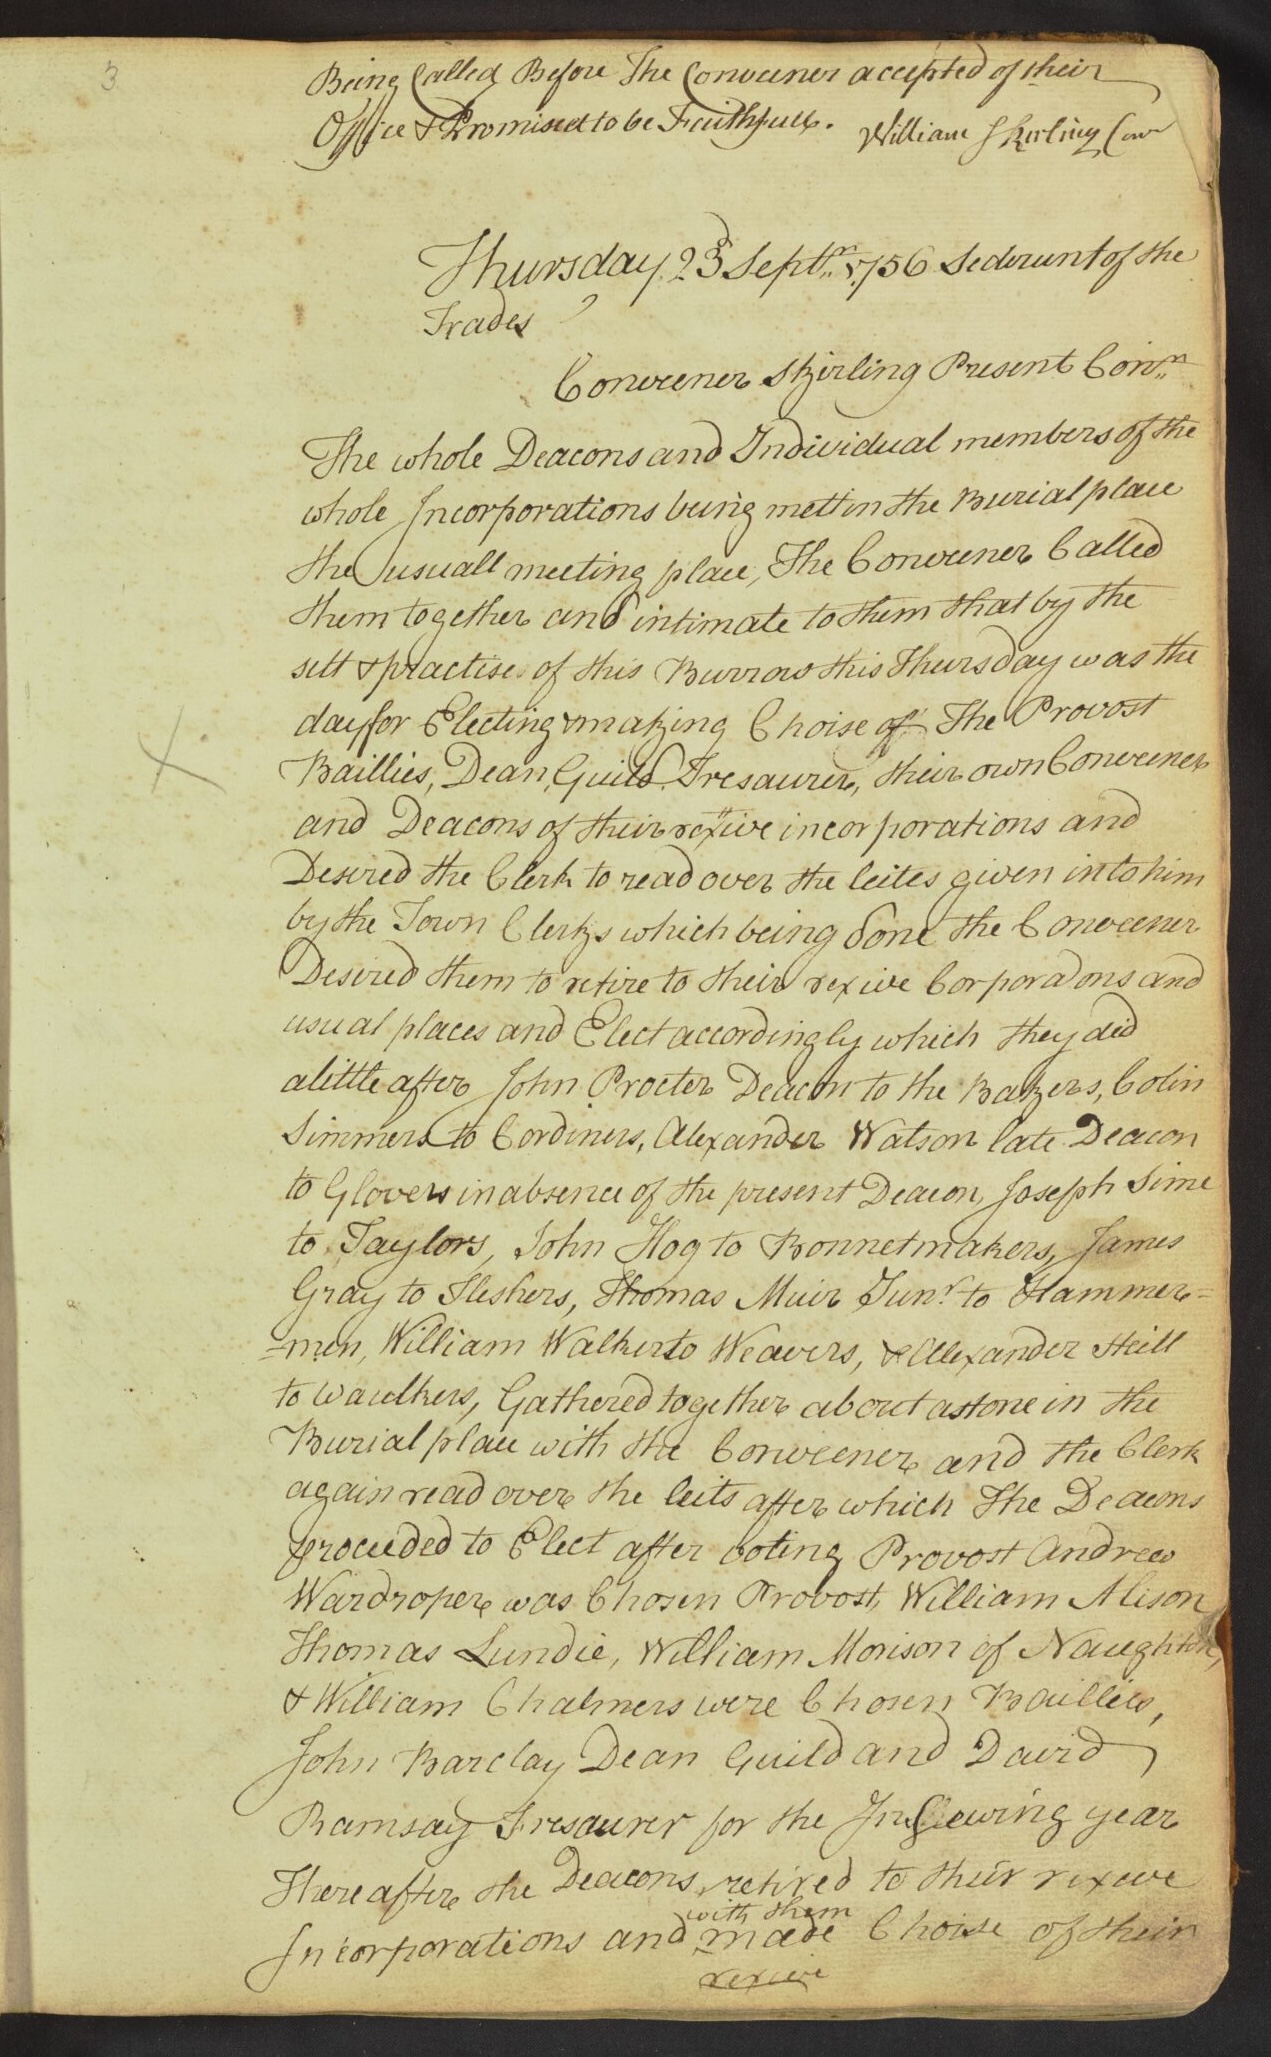 3
Being Called Before The Conveener accepted of their
Office & Promised to be Faithfull. William Skirling Con
Thursday 23d Septr. 1756 Sederunt of the
Trades
Conveener Skirling Present Convn.
The whole Deacons and Individual members of the
whole Incorporations being mett in the Burial place
the usuall meeting place, The Conveener Called
them together and intimate to them that by the
sett & practise of this Burrow this Thursday was the
day for Electing & making Choise of The Provost
Baillies, Dean Guild Tresaurer, their own Conveener
and Deacons of their rexive incorporations and
Desired the Clerk to read over the leites given in to him
by the Town Clerks which being done the Conveener
Desired them to retire to their rexive Corporaons and
usual places and Elect accordingly which they did
alittle after John Procter Deacon to the Bakers, Colin
Simmers to Cordiners, Alexander Watson late Deacon
to Glovers in absence of the present Deacon, Joseph Sime
to Taylors, John Hog to Bonnetmakers, James
Gray to Fleshers, Thomas Muir Junr. to Hammer=
=men, William Walker to Weavers, & Alexander Steill
to Waulkers, Gathered together about a stone in the
Burial place with the Conveener and the Clerk
again read over the leits after which The Deacons
proceeded to Elect after voting Provost Andrew
Wardroper was Chosen Provost, William Alison
Thomas Lundie, William Morison of Naughton,
& William Chalmers were Chosen Baillies,
John Barclay Dean Guild and David
Ramsay Tresaurer for the Insewing year
Thereafter the Deacons retired to their rexive
with them
Incorporations and made Choise of their
rexive